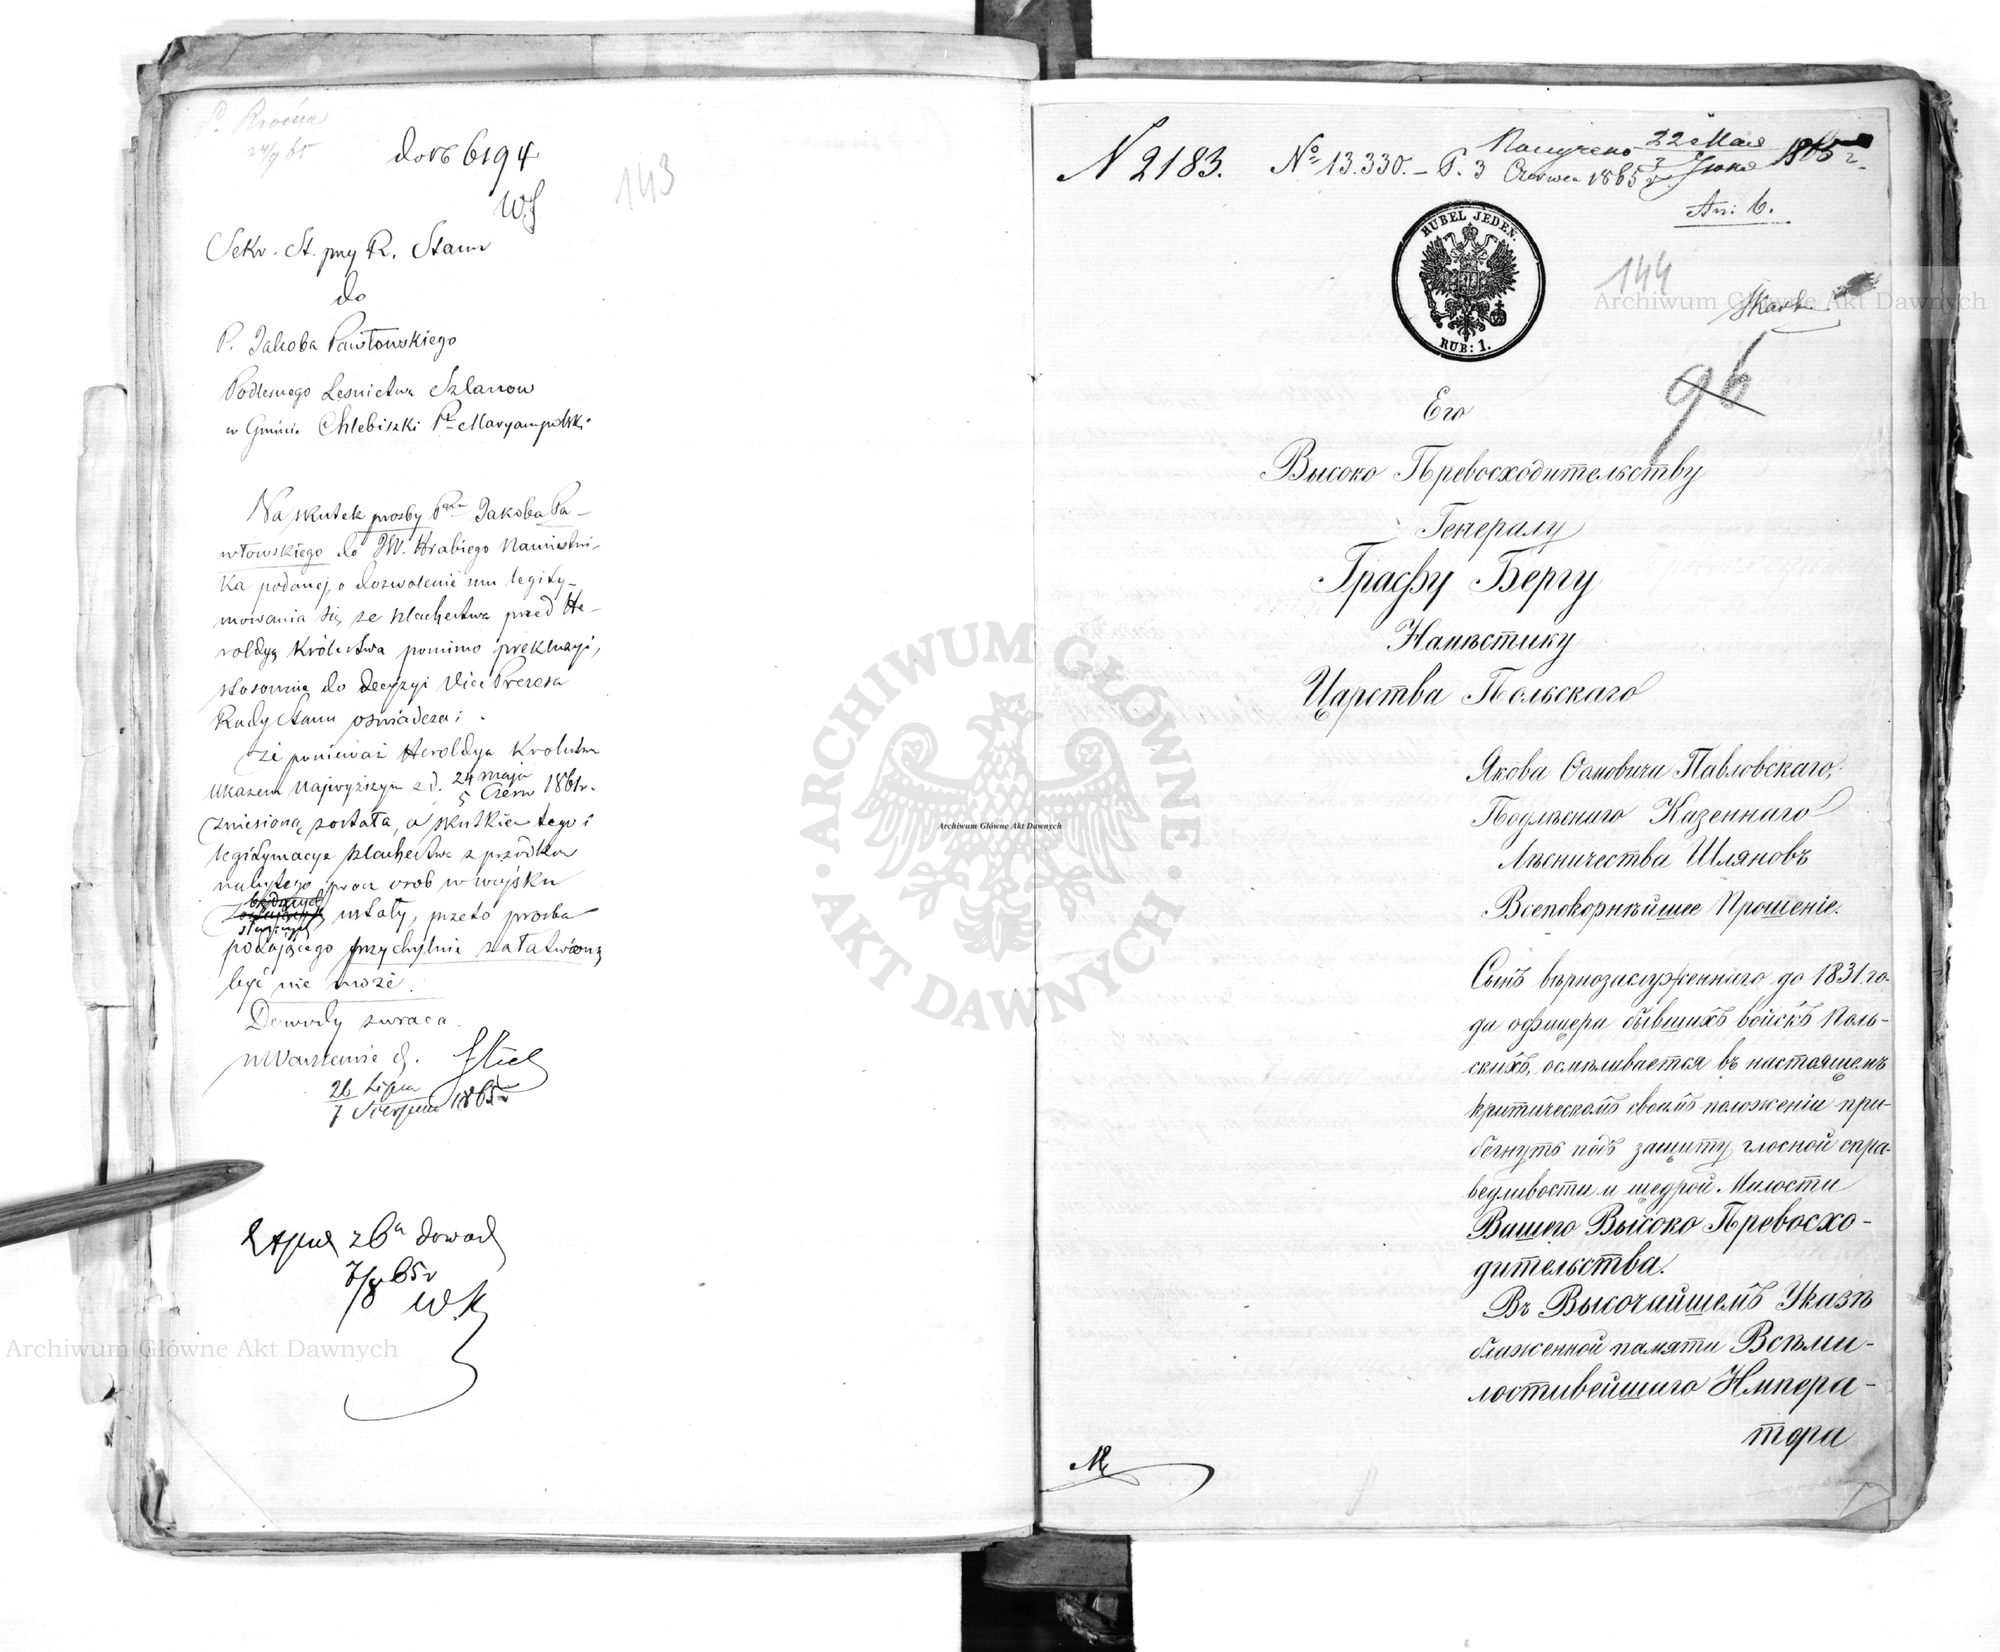 P. Ronisz
24/7 65
do № 6194
143
WS
Sekr. St. przy R. Stanu
do
P. Jakóba Pawłowskiego
Podleśnego Leśnictwa Szlanow
w Gminie Chlebiszki Pt Maryampolski
Na skutek prośby Pana Jakóba Pa-
włowskiego do JW. Hrabiego Namiestni-
ka podanej, o dozwolenie mu legity-
mowania się ze szlachectwa przed He-
roldyą Królestwa pomimo prekluzyi,
stosownie do decyzyi Vice Prezesa
Rady Stanu oświadcza:
że ponieważ Heroldya Królestwa
ukazem Najwyższym z d. 24 Maja
5 Czerw 1861 r.
zniesioną została, a skutkiem tego i
legitymacye szlachectwa z przodków
nabytego przez osob w wojsku
będących
służących
ustały, przeto prośba
podającego przychylnie załatwioną
być nie może.
Dowody zwraca.
w Warszawie d.
26 Lipca
7 Sierpnia 1865 r
z 6a dowod
7/8 65 r
WK
N 2183.
№ 13.330. – P. 3 Czerwca 1865 r.
Получено 22 Мая
3 Іюня 1865 г.
An: 6.
RUBEL JEDEN.
RUB: 1.
144
Skarb
96
Его
Высоко Превосходительству
Генералу
Графу Бергу
Намѣстнику
Царства Польскаго
Якова Осиповича Павловскаго,
Подлѣснаго Казеннаго
Лѣсничества Шляновъ
Всепокорнѣйшее Прошеніе.
Сынъ вѣрнозаслуженнаго до 1831 го-
да офицера бывшихъ войскъ Поль-
скихъ, осмѣливается въ настоящемъ
критическомъ своимъ положеніи при-
бегнуть подъ защиту гласной спра-
ведливости и щедрой Милости
Вашего Высоко Превосхо-
дительства.
Въ Высочайшемъ Указѣ
блаженной памяти Всеми-
лостивейшаго Импера-
тора
Archiwum Główne Akt Dawnych
Archiwum Główne Akt Dawnych
Archiwum Główne Akt Dawnych
ARCHIWUM GŁÓWNE · AKT DAWNYCH ·